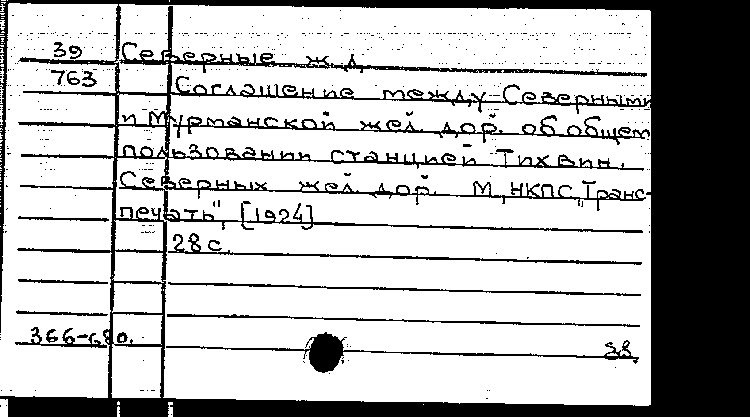 39 Северные ж.д.
763 Соглашение между Северными
и Мурманской жел. дор. об общем
пользовании станцией Тихвин.
Северных жел. дор. М., НКПС, „Транс-
печать", [1924]
28 с.